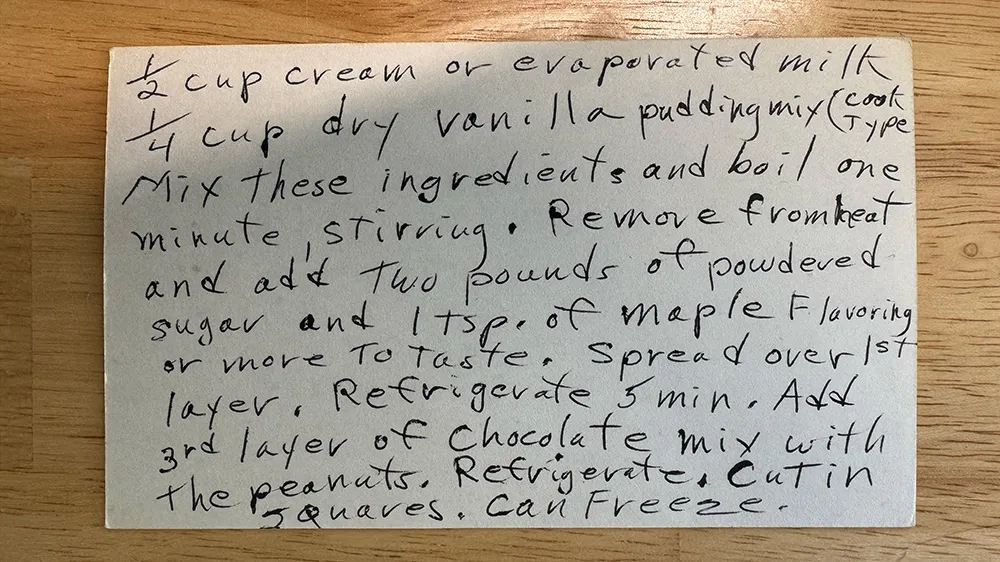 1/2 cup cream or evaporated milk
1/4 cup dry vanilla pudding mix (cook Type
Mix these ingredients and boil one
minute, stirring. Remove from heat
and add Two pounds of powdered
sugar and 1 Tsp. of maple Flavoring
or more To Taste. Spread over 1st
layer. Refrigerate 5 min. Add
3rd layer of Chocolate mix with
the peanuts. Refrigerate. Cut in
Squares. Can Freeze.